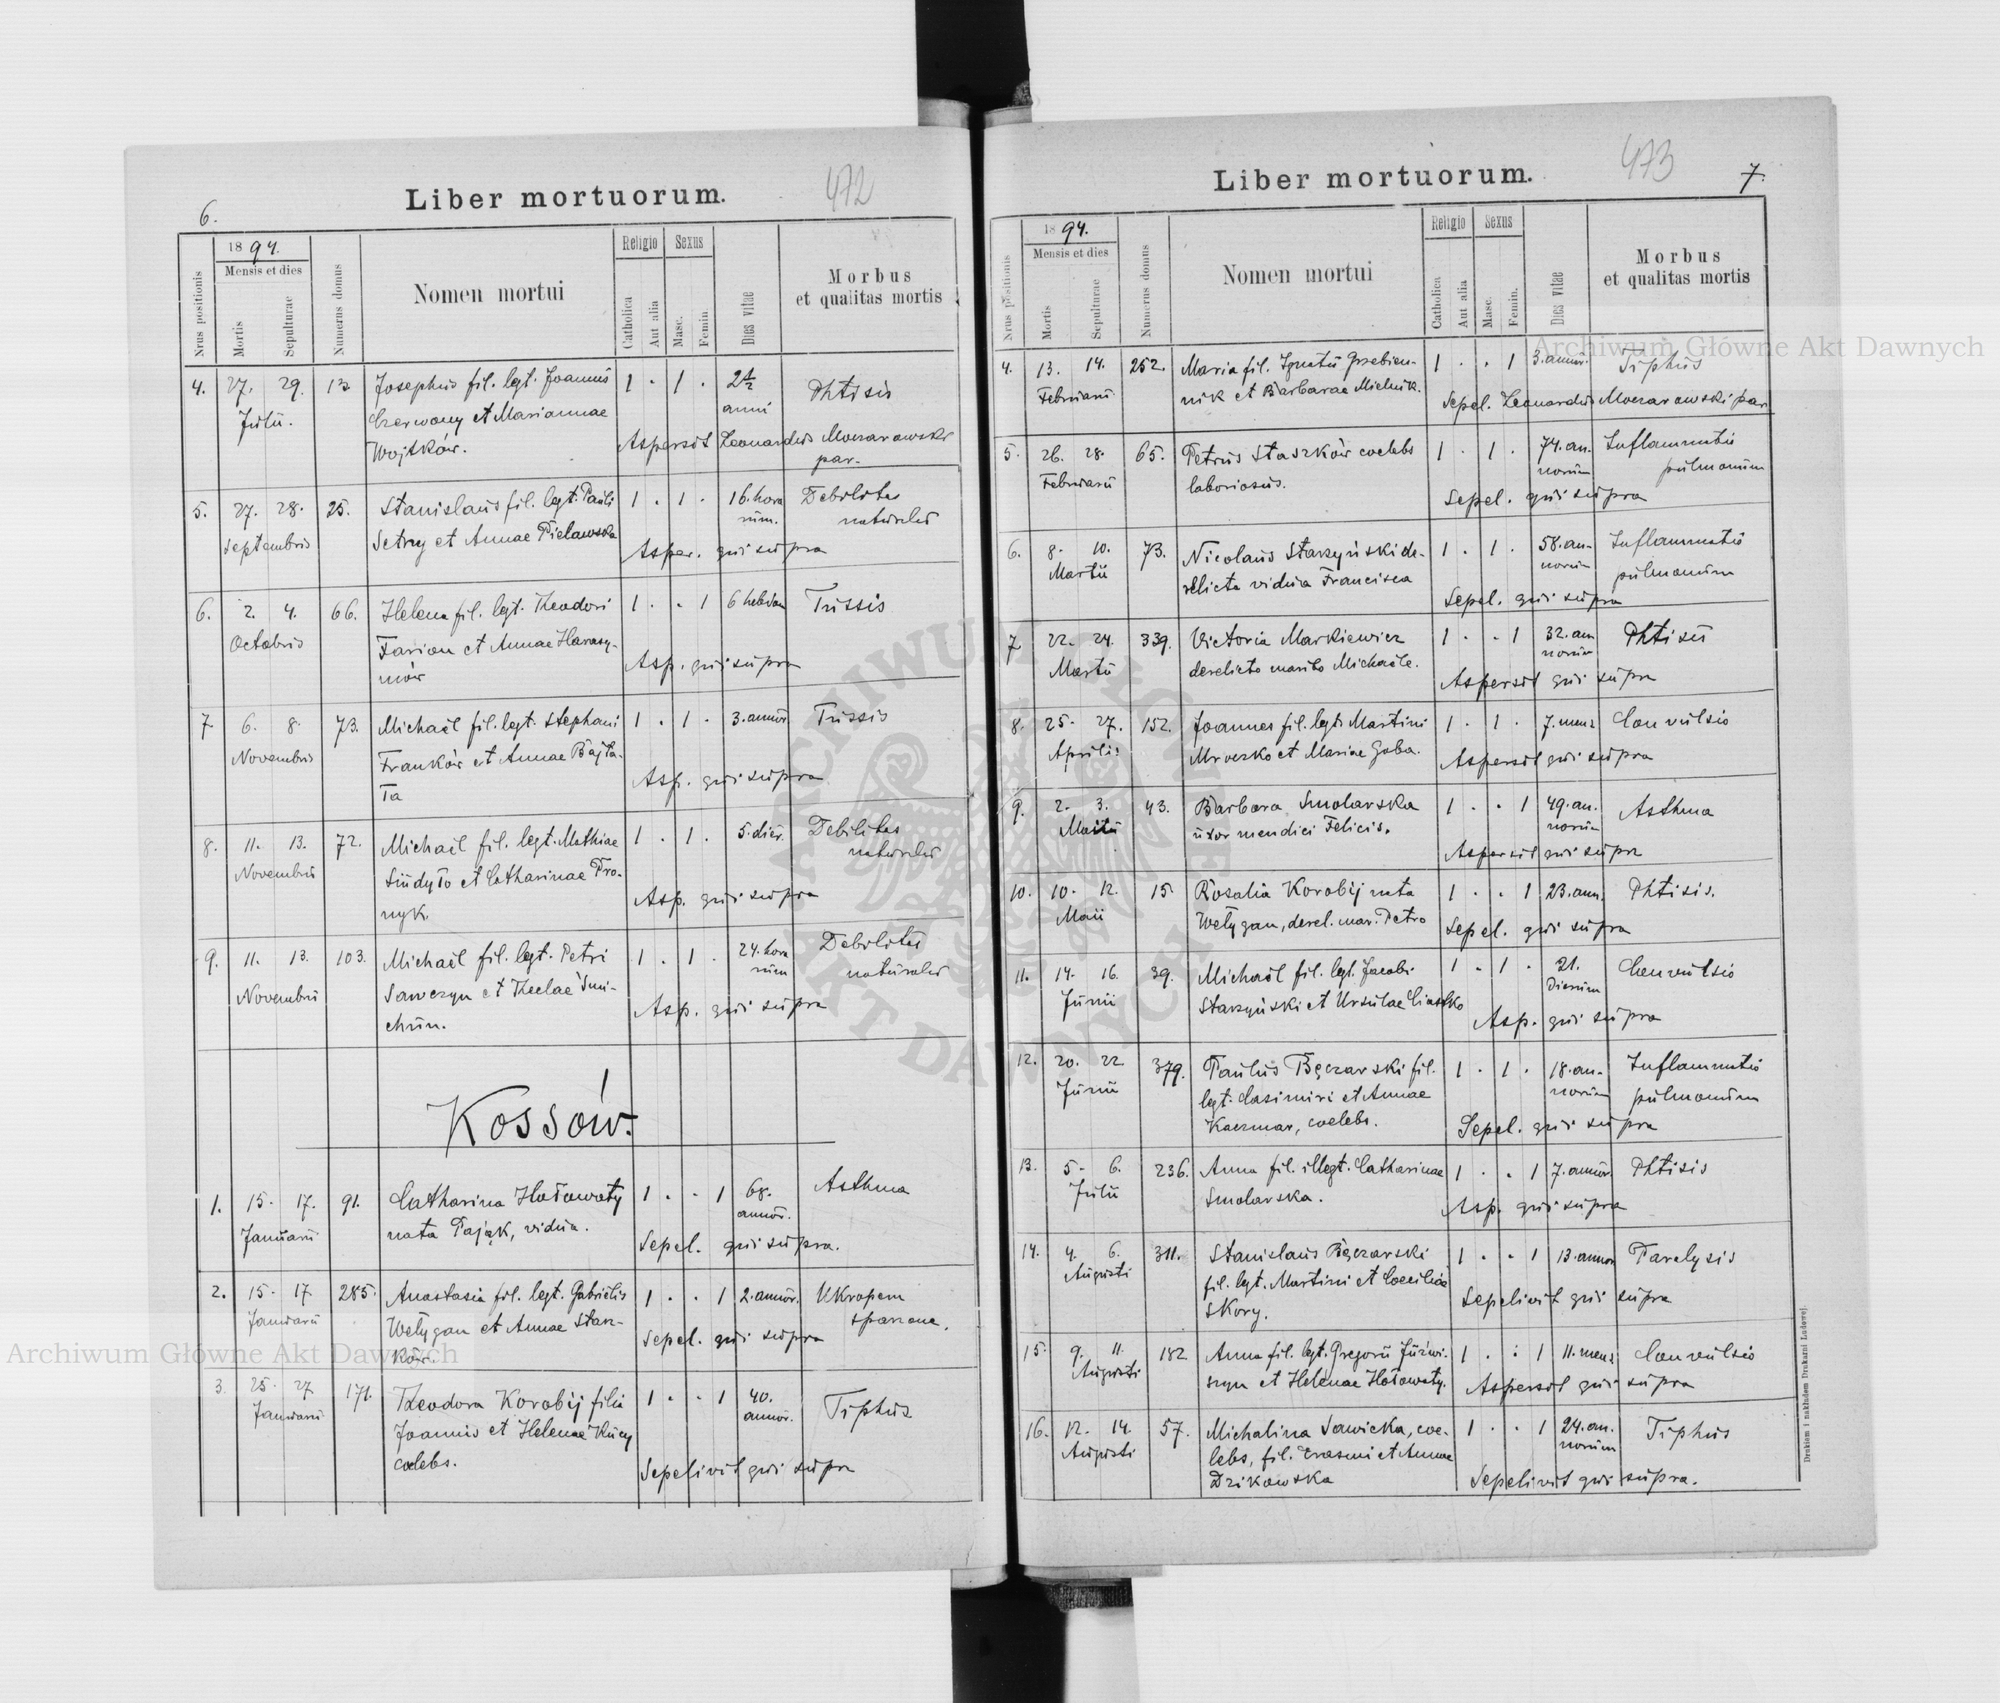 472
6.
Liber mortuorum.
1894.
Mensis et dies
Nrus positionis
Mortis
Sepulturae
Numerus domus
Nomen mortui
Religio
Sexus
Catholica
Aut alia
Masc.
Femin.
Dies vitae
Morbus
et qualitas mortis
4. 27. 29. 13 Josephus fil. legt. Joannis 1 . 1 . 2 1/2 Phtisis
Julii. Czerwony et Mariannae anni
Wojtków. Aspersit Leonardus Moczarowski
par.
5. 27. 28. 25. Stanislaus fil. legt. Pauli 1 . 1 . 16. hora Debilitas
Septembris Setny et Annae Pielawska rum. naturalis
Asper. qui supra
6. 2. 4. 66. Helena fil. legt. Theodori 1 . . 1 6 hebdom Tussis
Octobris Farion et Annae Harasy-
mów Asp. qui supra
7 6. 8. 73. Michaël fil. legt. Stephani 1 . 1 . 3. annor. Tussis
Novembris Franków et Annae Bajta-
ła Asp. qui supra
8. 11. 13. 72. Michaël fil. legt. Mathiae 1 . 1 . 5. dier. Debilitas
Novembris Sudyło et Catharinae Pro- naturalis
nyk. Asp. qui supra
9. 11. 13. 103. Michaël fil. legt. Petri 1 . 1 . 24. hora Debilitas
Novembris Sawczyn et Theclae Smi- rum naturalis
chun. Asp. qui supra
Kossów.
1. 15. 17. 91. Catharina Hołowaty 1 . . 1 68. Asthma
Januarii nata Pająk, vidua. annor.
Sepel. qui supra.
2. 15. 17 285. Anastasia fil. legt. Gabrielis 1 . . 1 2. annor. Ukropem
Januarii Wełygan et Annae Stasz- sparzone.
ków. Sepel. qui supra
3. 25. 27 171. Theodora Korobij filia 1 . . 1 40. Tiphus
Januarii Joannis et Helenae Kucy annor.
coelebs. Sepelivit qui supra
473
7.
Liber mortuorum.
1894.
Mensis et dies
Nrus positionis
Mortis
Sepulturae
Numerus domus
Nomen mortui
Religio
Sexus
Catholica
Aut alia
Masc.
Femin.
Dies vitae
Morbus
et qualitas mortis
4. 13. 14. 252. Maria fil. Ignatii Grzebien- 1 . . 1 3. annor. Tiphus
Februarii nik et Barbarae Mielnik. Sepel. Leonardus Moczarowski par.
5. 26. 28. 65. Petrus Staszków coelebs 1 . 1 . 74. an- Inflammatio
Februarii laboriosus. norum pulmonum
Sepel. qui supra
6. 8. 10. 73. Nicolaus Starzyński de- 1 . 1 . 58. an- Inflammatio
Martii relicta vidua Francisca norum pulmonum
Sepel. qui supra
7 22. 24. 339. Victoria Markiewicz 1 . . 1 32. an Phtisis
Martii derelicto marito Michaële. norum
Aspersit qui supra
8. 25. 27. 152. Joannes fil. legt. Martini 1 . 1 . 7. mens Convulsio
Aprilis Mroczko et Mariae Goba. Aspersit qui supra
9. 2. 3. 43. Barbara Smolarska 1 . . 1 49. an. Asthma
Maii uxor mendici Felicis. norum
Aspersit qui supra
10. 10. 12. 15. Rosalia Korobij nata 1 . . 1 23. ann. Phtisis.
Maii Wełygan, derel. mar. Petro Sepel. qui supra
11. 14. 16. 39. Michaël fil. legt. Jacobi 1 . 1 . 21. Convulsio
Junii Starzyński et Ursulae Ciastko Dierum
Asp. qui supra
12. 20. 22. 379. Paulus Bęczarski fil. 1 . 1 . 18. an- Inflammatio
Junii legt. Casimiri et Annae norum pulmonum
Kaczmar, coelebs. Sepel. qui supra
13. 5. 6. 236. Anna fil. illegt. Catharinae 1 . . 1 7. annor Phtisis
Julii Smolarska. Asp. qui supra
14. 4. 6. 311. Stanislaus Bęczarski 1 . . 1 13. annor Paralysis
Augusti fil. legt. Martini et Coeciliae
Skory. Sepelivit qui supra
15. 9. 11. 182 Anna fil. legt. Gregorii Juźwi- 1 . . 1 11. mens Convulsio
Augusti szyn et Helenae Hołowaty. Aspersit qui supra
16. 12. 14. 57. Michalina Sawicka, coe- 1 . . 1 24. an. Tiphus
Augusti lebs, fil. Erasmi et Annae norum
Dzikowska Sepelivit qui supra.
Drukiem i nakładem Drukarni Ludowej.
Archiwum Główne Akt Dawnych
Archiwum Główne Akt Dawnych
ARCHIWUM GŁÓWNE AKT DAWNYCH